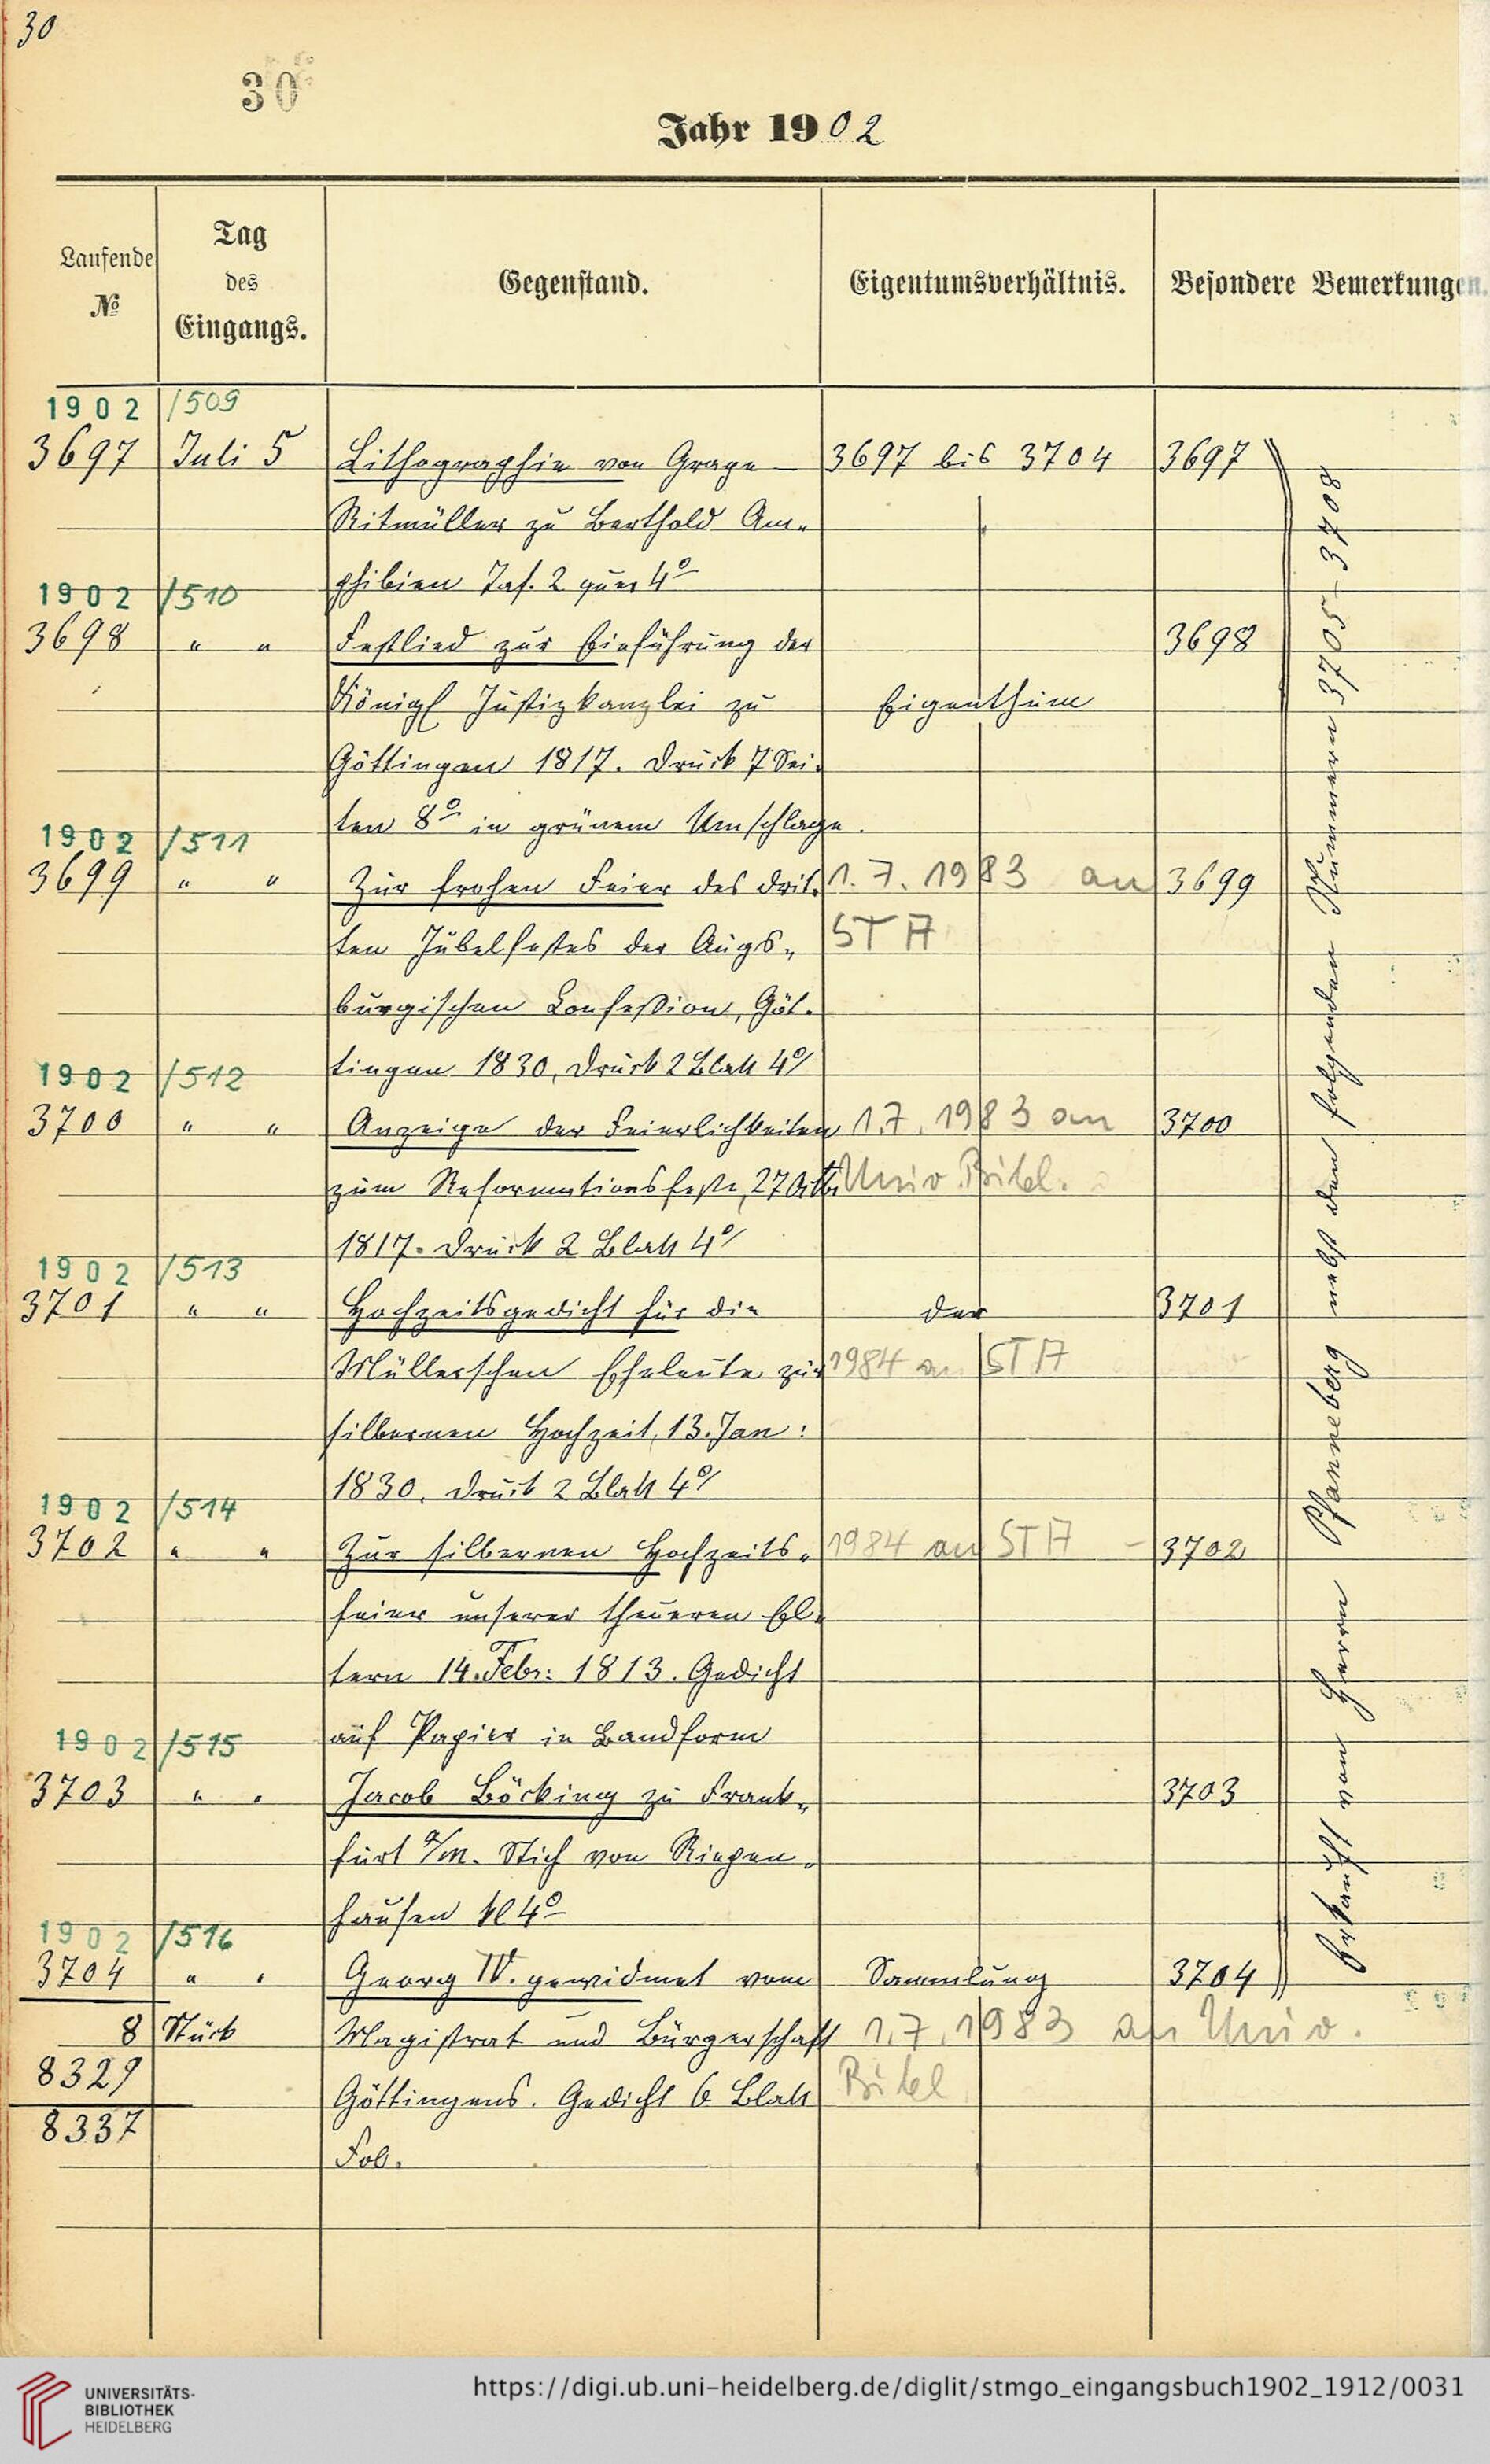 30
30
Jahr 1902
Laufende
№
Tag
des
Eingangs.
Gegenstand.
Eigentumsverhältnis.
Besondere Bemerkungen.
1902 /509
3697 Juli 5 Lithographie von Grape 3697 bis 3704 3697
Ritmüller zu Berthold Am-
phibien Taf. 2 quer 4°
1902 /510
3698 " " Festlied zur Einführung der 3698
Königl Justizkanzlei zu Eigenthum
Göttingen 1817. Druck 7 Sei-
ten 8° in grünem Umschlage.
1902 /511
3699 " " Zur frohen Feier des drit- 1.7.1983 an 3699
ten Jubelfestes der Augs- STA
burgischen Confession, Göt-
tingen 1830, Druck 2 Blatt 4°
1902 /512
3700 " " Anzeige der Feierlichkeiten 1.7.1983 an 3700
zum Reformationsfeste, 27 Univ. Bibl.
1817. Druck 2 Blatt 4°
1902 /513
3701 " " Hochzeitsgedicht für die der 3701
Müllerschen Eheleute zur 1984 an STA
silbernen Hochzeit, 13. Jan:
1830. Druck 2 Blatt 4°
1902 /514
3702 " " Zur silbernen Hochzeits- 1984 an STA - 3702
feier unserer theueren El-
tern 14. Febr: 1813. Gedicht
auf Papier in Bandform
1902 /515
3703 " " Jacob Böcking zu Frank- 3703
furt a/M. Stich von Riepen-
hausen kl 4°
1902 /516
3704 " " Georg IV. gewidmet vom Sammlung 3704
8 Stück Magistrat und Bürgerschaft 1.7.1983 an Univ.
8329 Göttingens. Gedicht 6 Blatt Bibl
8337 Fol.
Erkauft von Herrn Pfanneberg nebst den folgenden Nummern 3705-3708
UNIVERSITÄTS-
BIBLIOTHEK
HEIDELBERG
https://digi.ub.uni-heidelberg.de/diglit/stmgo_eingangsbuch1902_1912/0031